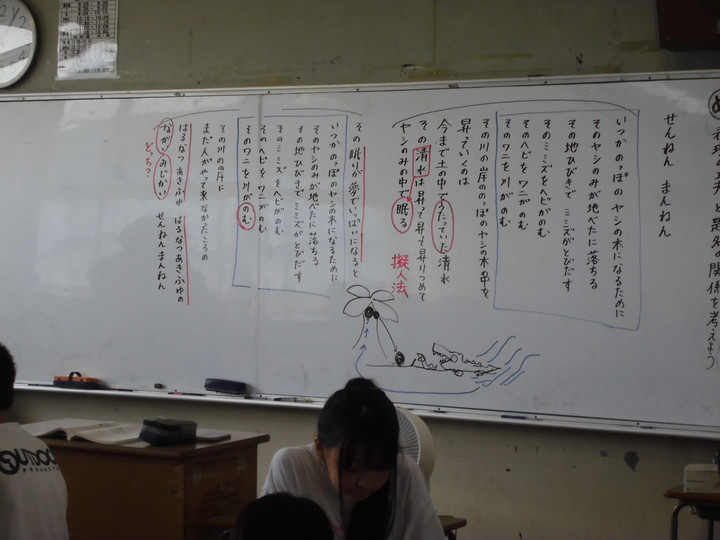 の関係を考えよう
せんねん まんねん
いつかのっぽのヤシの木になるために
そのヤシのみが地べたに落ちる
その地ひびきでミミズがとびだす
そのミミズをヘビがのむ
そのヘビをワニがのむ
そのワニを川がのむ
その川の岸ののっぽのヤシの木の中を
昇っていくのは
今まで土の中でうたっていた清水
その清水は昇って昇って昇りつめて
ヤシのみの中で眠る
擬人法
その眠りが夢でいっぱいになると
いつかのっぽのヤシの木になるために
そのヤシのみが地べたに落ちる
その地ひびきでミミズがとびだす
そのミミズをヘビがのむ
そのヘビをワニがのむ
そのワニを川がのむ
その川の岸に
まだ人がやって来なかったころの
はるなつあきふゆ はるなつあきふゆの
ながいみじかい せんねんまんねん
どっち?